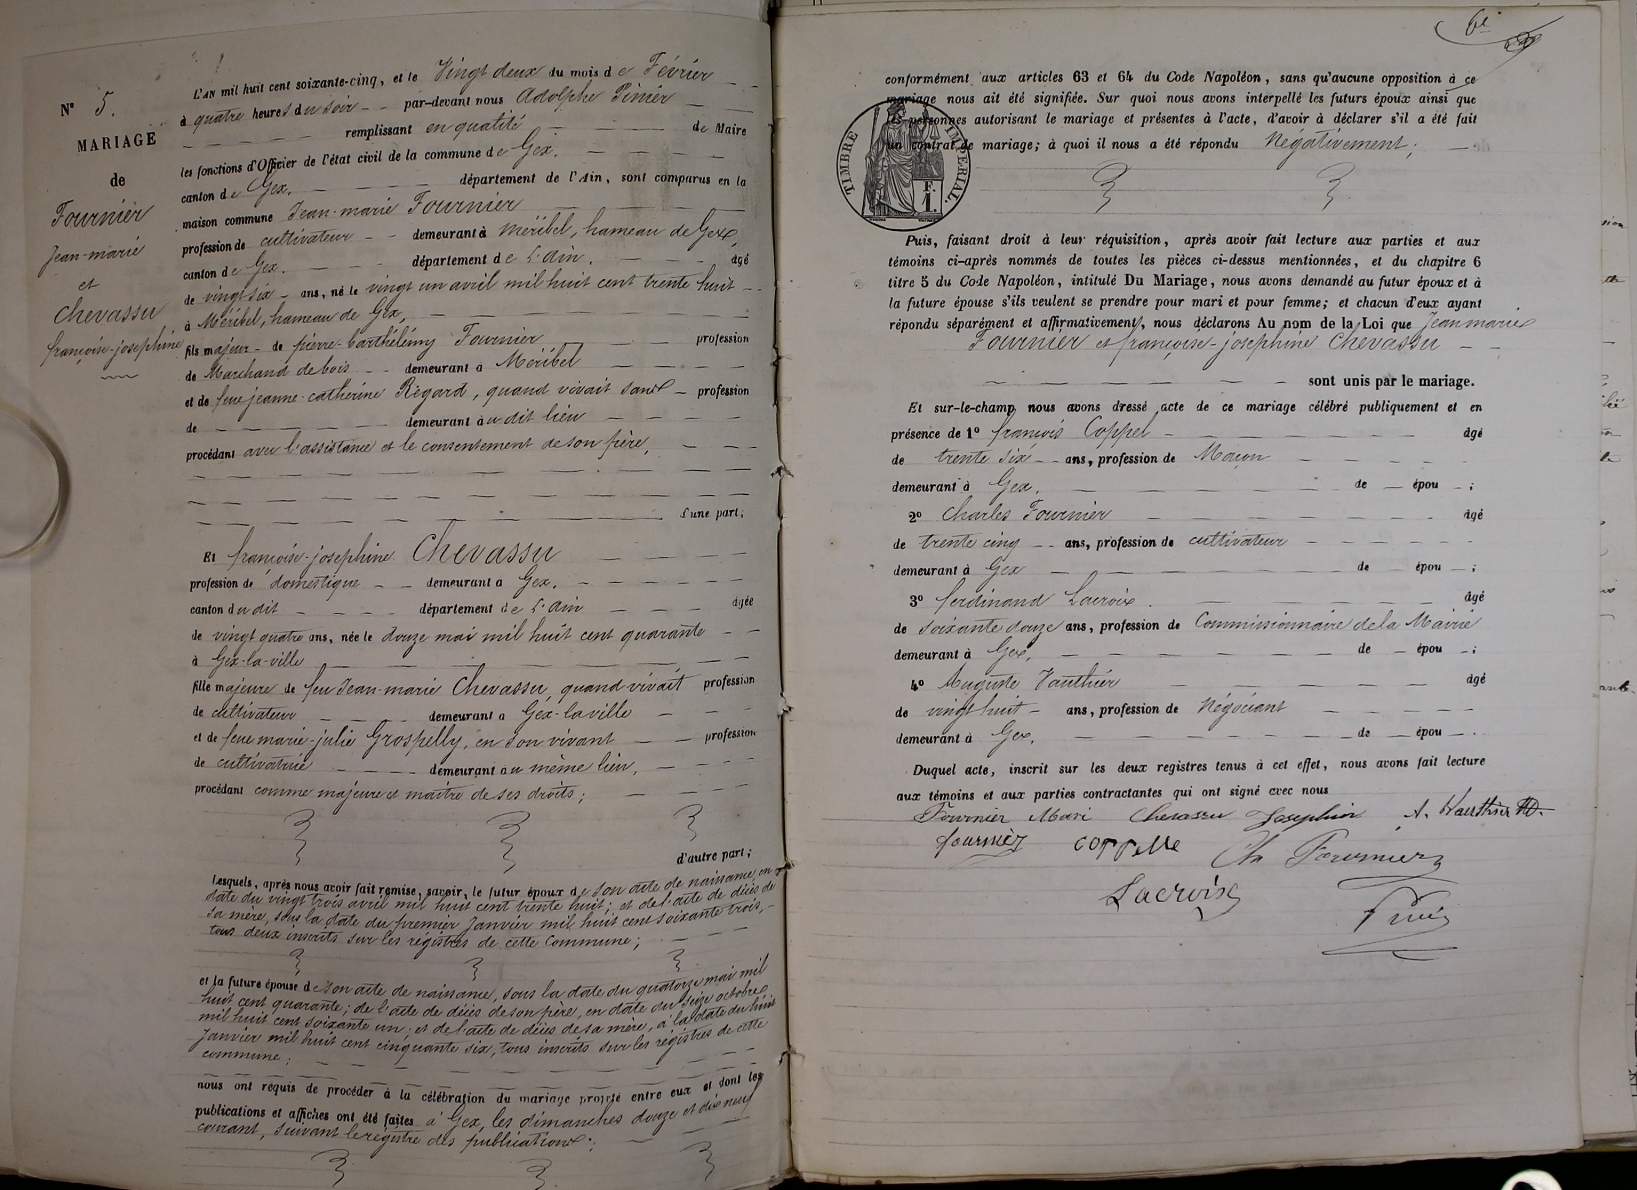 N° 5.
MARIAGE
de
Fournier
Jean-marie
et
Chevassu
françoise-joséphine
L'AN mil huit cent soixante-cinq, et le Vingt deux du mois de Février
à quatre heures du soir par-devant nous Adolphe Pinier
remplissant en qualité de Maire
les fonctions d'Officier de l'état civil de la commune de Gex.
canton de Gex. département de l'Ain, sont comparus en la
maison commune Jean-marie Fournier
profession de cultivateur demeurant à Méribel, hameau de Gex,
canton de Gex. département de L'ain. âgé
de vingt six ans, né le vingt un avril mil huit cent trente huit
à Méribel, hameau de Gex,
fils majeur de pierre-barthélémy Fournier profession
de Marchand de bois demeurant à Méribel
et de feue jeanne-catherine Régard, quand vivait sans profession
de demeurant au dit lieu
procédant avec l'assistance et le consentement de son père,
d'une part;
Et françoise-josephine Chevassu
profession de domestique demeurant à Gex.
canton du dit département de L'ain âgée
de vingt quatre ans, née le douze mai mil huit cent quarante
à Gex-la-ville
fille majeure de feu Jean-marie Chevassu, quand vivait profession
de cultivateur demeurant à Gex-la-ville
et de feue marie-julie Grospelly, en son vivant profession
de cultivatrice demeurant au même lieu,
procédant comme majeure et maître de ses droits;
d'autre part;
Lesquels, après nous avoir fait remise, savoir, le futur époux de son acte de naissance, en
date du vingt trois avril mil huit cent trente huit; et de l'acte de décès de
sa mère, sous la date du premier Janvier mil huit cent soixante trois,
tous deux inscrits sur les régistres de cette Commune;
et la future épouse de son acte de naissance, sous la date du quatorze mai mil
huit cent quarante; de l'acte de décès de son père, en date du seize octobre
mil huit cent soixante un; et de l'acte de décès de sa mère, à la date du huit
Janvier mil huit cent cinquante six, tous inscrits sur les régistres de cette
commune;
nous ont requis de procéder à la célébration du mariage projeté entre eux et dont les
publications et affiches ont été faites à Gex, les dimanches douze et dix neuf
courant, suivant le régistre des publications;
6e
conformément aux articles 63 et 64 du Code Napoléon, sans qu'aucune opposition à ce
mariage nous ait été signifiée. Sur quoi nous avons interpellé les futurs époux ainsi que
les personnes autorisant le mariage et présentes à l'acte, d'avoir à déclarer s'il a été fait
un contrat de mariage; à quoi il nous a été répondu Négativement;
TIMBRE IMPERIAL.
F.
1.
Puis, faisant droit à leur réquisition, après avoir fait lecture aux parties et aux
témoins ci-après nommés de toutes les pièces ci-dessus mentionnées, et du chapitre 6
titre 5 du Code Napoléon, intitulé Du Mariage, nous avons demandé au futur époux et à
la future épouse s'ils veulent se prendre pour mari et pour femme; et chacun d'eux ayant
répondu séparément et affirmativement, nous déclarons Au nom de la Loi que Jean marie
Fournier et françoise-joséphine Chevassu
sont unis par le mariage.
Et sur-le-champ nous avons dressé acte de ce mariage célébré publiquement et en
présence de 1° françois Coppel âgé
de trente six ans, profession de Maçon
demeurant à Gex. de épou ;
2° Charles Fournier âgé
de trente cinq ans, profession de cultivateur
demeurant à Gex de épou ;
3° ferdinand Lacroix. âgé
de soixante douze ans, profession de Commissionnaire de la Mairie
demeurant à Gex, de épou ;
4° Auguste Vauthier âgé
de vingt huit ans, profession de Négociant
demeurant à Gex. de épou .
Duquel acte, inscrit sur les deux registres tenus à cet effet, nous avons fait lecture
aux témoins et aux parties contractantes qui ont signé avec nous
Fournier Mari Chevassu Josephine A. Vauthier
fournier coppelle Ch Fournier
Lacroix
Pinier